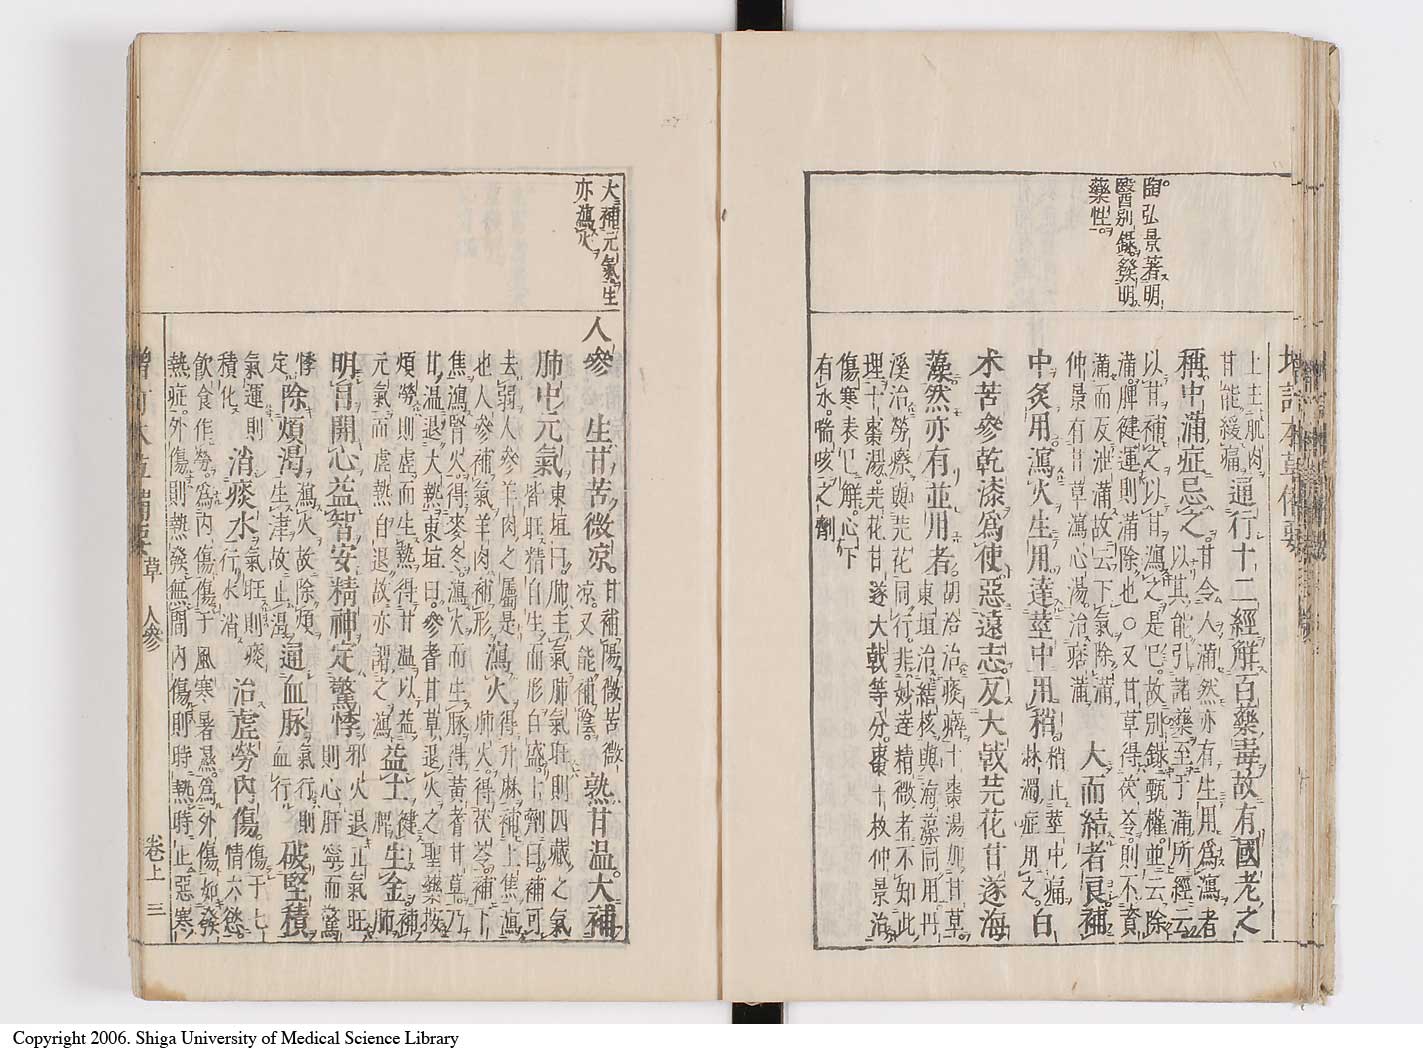 陶弘景著明
醫別錄發明
藥性
上主肌肉
甘能緩痛
通行十二經解百藥毒故有國老之
稱中滿症忌之
甘令人滿然亦有生用爲瀉者
以其能引諸藥至于滿所經云
以甘補之以甘瀉之是已故別錄甄權並云除
滿脾健運則滿除也○又甘草得茯苓則不資
滿而反泄滿故云下氣除滿
仲景有甘草瀉心湯治痞滿
大而結者良補
中炙用瀉火生用達莖中用稍
稍止莖中痛
淋濁症用之
白
朮苦參乾漆爲使惡遠志反大戟芫花甘遂海
藻然亦有並用者
胡洽治痰癖十棗湯加甘草
東垣治結核與海藻同用丹
溪治勞瘵與芫花同行非妙達精微者不知此
理十棗湯芫花甘遂大戟等分棗十枚仲景治
傷寒表已解心下
有水喘咳之劑
大補元氣生
亦瀉火
人參
生甘苦微凉
甘補陽微苦微
凉又能補陰
熟甘温大補
肺中元氣
東垣曰肺主氣肺氣旺則四臟之氣
皆旺精自生而形自盛十劑曰補可
去弱人參羊肉之屬是
也人參補氣羊肉補形
瀉火
得升麻補上焦瀉
肺火得茯苓補下
焦瀉腎火得麥冬瀉火而生脉得黃耆甘草乃
甘温退大熱東垣曰參耆甘草退火之聖藥按
煩勞則虛而生熱得甘温以益
元氣而虛熱自退故亦謂之瀉
益土
健脾
生金
補肺
明目開心益智安精神定驚悸
邪火退正氣旺
則心肝寧而驚
悸定
除煩渴
瀉火故除煩
生津故止渴
通血脉
氣行則
血行
破堅積
氣運則
積化
消痰水
氣旺則痰
行水消
治虛勞內傷
傷于七
情六慾
飲食作勞爲內傷傷于風寒暑濕爲外傷如發
熱症外傷則熱發無間內傷則時熱時止惡寒
草 人參
卷上 三